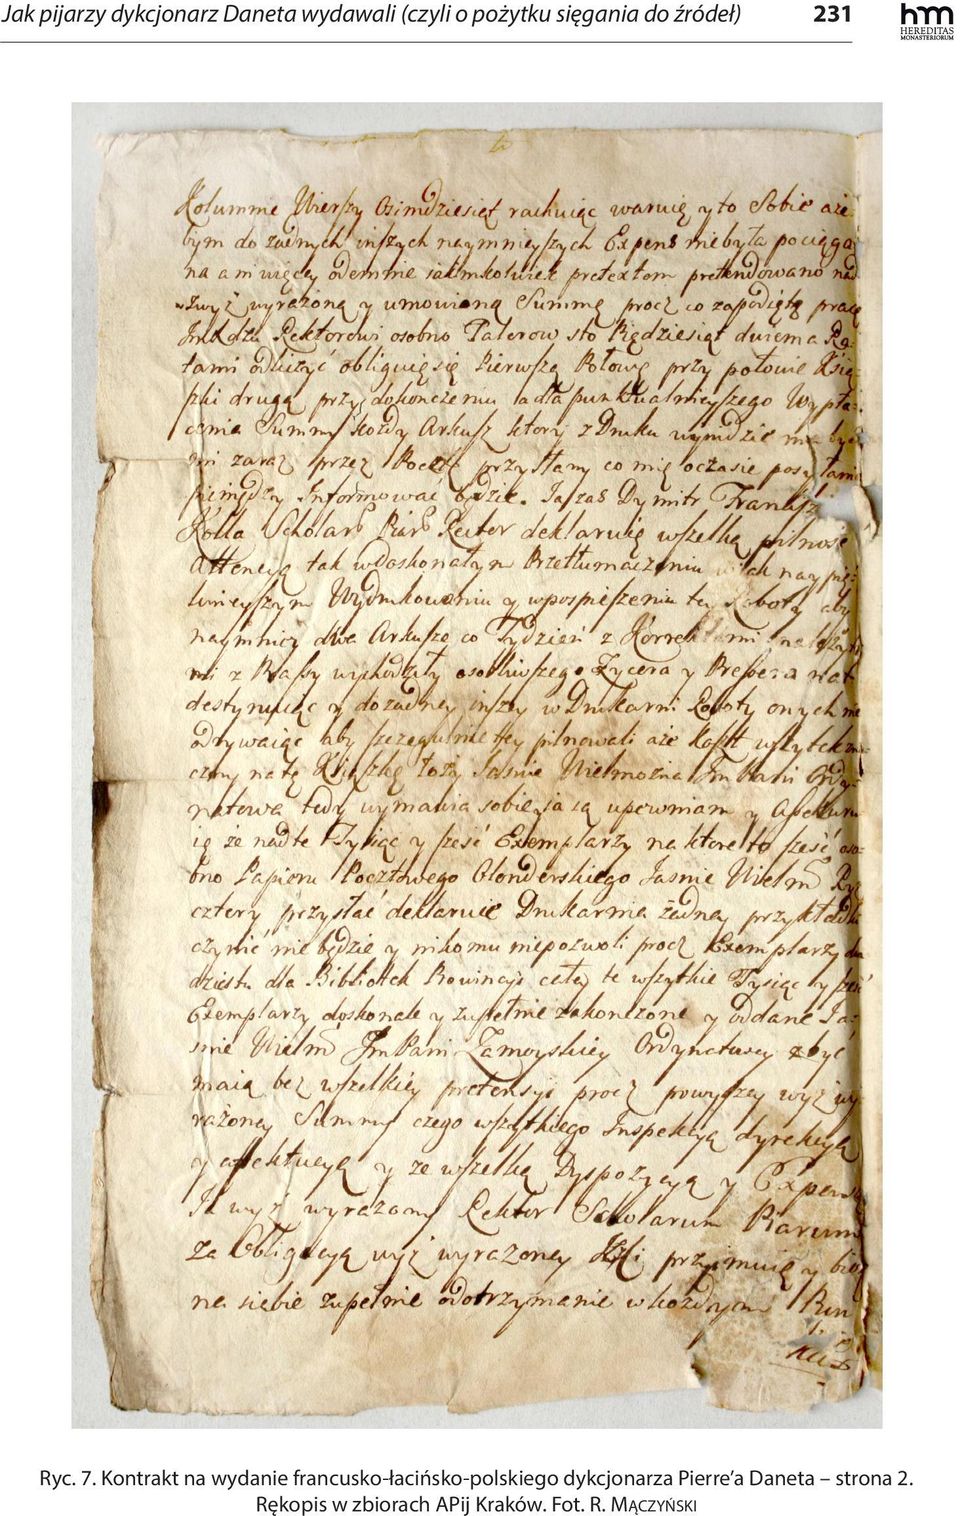 Jak pijarzy dykcjonarz Daneta wydawali (czyli o pożytku sięgania do źródeł) 231
hm
HEREDITAS
MONASTERIORUM
Kolumnie Wierszy Osimdziesiąt rachuiąc waruię y to Sobie aże
bym do żadnych inszych naymnieyszych Expens niebyła pociąga
na a ni więcey odemnie iakimkolwiek pretextem pretendowano nad
zwyż wyrażoną y umowioną Summę procz co zapodiętą pracę
Rektorowi osobno Talerow sto Piędziesiąt dwiema Ra
tami odliczyć obliguię się Pierwszą Połowę przy połowie Księ
szki drugą przy dokończeniu a dla punktualnieyszego Wypła
cenia Summy każdy Arkusz ktory z Druku wynidzie ma być
mi zaraz przez Pocztę przysłany co mię o czasie posyłania
pieniędzy Informować będzie. Ja zaś Dymitr Francisz
Kolla Scholar Piar Rektor deklaruię wszelką pilność
Attencyą tak w doskonałym Przetłumaczeniu iak nay pię
knieyszym Wydrukowaniu y wpospieszeniu tey Roboty aby
naymniey dwa Arkusze co Tydzień z Korrekturami należyty
mi z Prassy wychodziły osobliwszego Zycera y Pressera nato
destynuiąc y do żadney inszey w Drukarni Roboty onych nie
odrywaiąc aby szczegulnie tey pilnowali aże Koszt wszytek
na tę Książkę łoży Jaśnie Wielmożna Jm Pani Ordy
natowa tedy wymawia sobie, ja ią upewniam y Assekuru
ię że nad te Tysiąc y sześć Exemplarzy na ktore to sześć oso
bno Papieru Poczthwego Olonderskiego Jasnie Wielm Ry
cztery przysłać deklaruie Drukarnia żadney przykładki
czynić nie będzie y nikomu niepozwoli procz Exemplarzy dwu
dziestu dla Bibliotek Prowincyi całey te wszytkie Tysiąc y sześć
Exemplarzy doskonale y zupełnie zakonczone y oddane Ja
snie Wielm Jm Pani Zamoyskiey Ordynatowey być
maią bez wszelkiey pretensyi procz powyszey wyż wy
rażoney Summy czego wszytkiego Inspekcyą dyrekcyą
y effektucyą y ze wszelką Dyspozycyą y Expensą
Ja wyż wyrazony Rektor Scholarum Piarum
za Obligacyą wyż wyrazoney przyimuię y biorę
na siebie zupełnie odotrzymanie w każdym Pun
kcie
Ryc. 7. Kontrakt na wydanie francusko-łacińsko-polskiego dykcjonarza Pierre’a Daneta – strona 2.
Rękopis w zbiorach APij Kraków. Fot. R. Mączyński